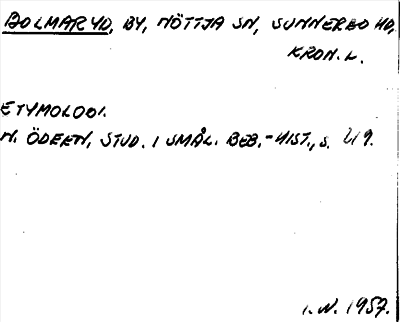 BOLMARYD, BY, NÖTTJA SN, SUNNERBO HD,
KRON. L.
ETYMOLOGI.
N. ÖDEEN, STUD. I SMÅL. BEB.-HIST., S. 49.
I. N. 1957.